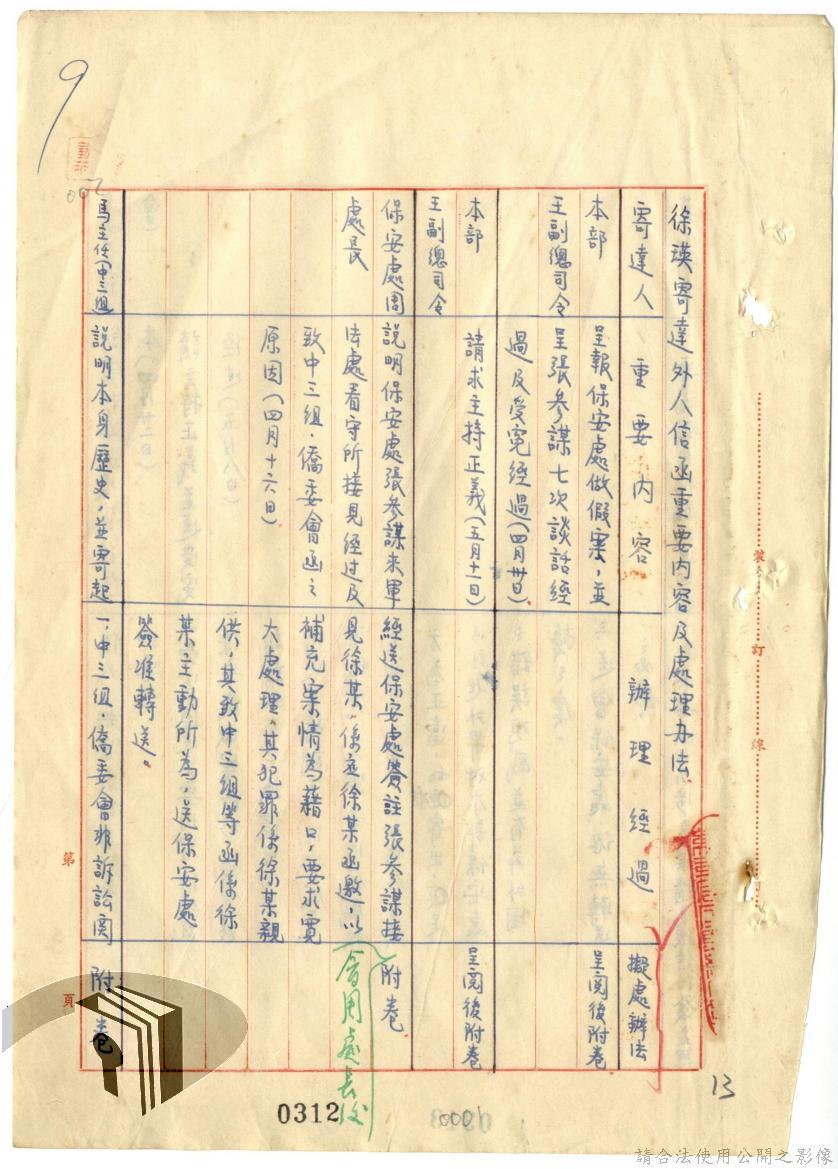 徐瑛寄達外人信函重要內容及處理办法
寄達人 重要內容 辦理經過 擬處辦法
本部
王副總司令
呈報保安處做假案，並
呈張參謀七次談話經
過及受冤經過(四月卅日)。
呈閱後附卷
本部
王副總司令
請求主持正義(五月十一日)
呈閱後附卷
保安處周
處長
說明保安處張參謀來軍
法處看守所接見經过及
致中三組．僑委會函之
原因(四月十六日)
經送保安處簽註張參謀接
見徐某，係應徐某函邀，以
補充案情為藉口，要求寬
大處理，其犯罪係徐某親
供，其致中三組等函係徐
某主動所為，送保安處
簽准轉送。
附卷
會周處長後
馬主任(中三組
說明本身歷史，並寄起
一、中三組．僑委會非訴訟関
附卷
裝
訂
線
第
頁
9
002
13
0312
0001
請合法使用公開之影像